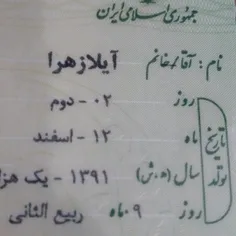 جمهوری اسلامی ایران
نام : آقا/خانم آیلازهرا
روز ۰۲ - دوم
ماه ۱۲ - اسفند
سال (ه.ش) ۱۳۹۱ - یک هزا
روز ۹ ماه ربیع الثانی
تاریخ تولد